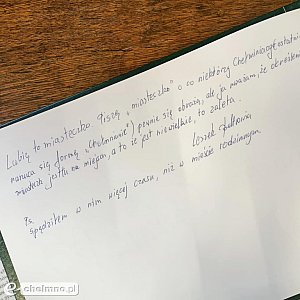 Lubię to miasteczko. Piszę „miasteczko”, o co niektórzy
narzuca się formę „Chełmnianie”) pewnie się obrażą, ale ja uważam, że określenie
jest na miejscu, a to że jest niewielkie, to zaleta.
Leszek
Ps.
Spędziłem w nim więcej czasu, niż w mieście rodzinnym.
e-chelmno.pl